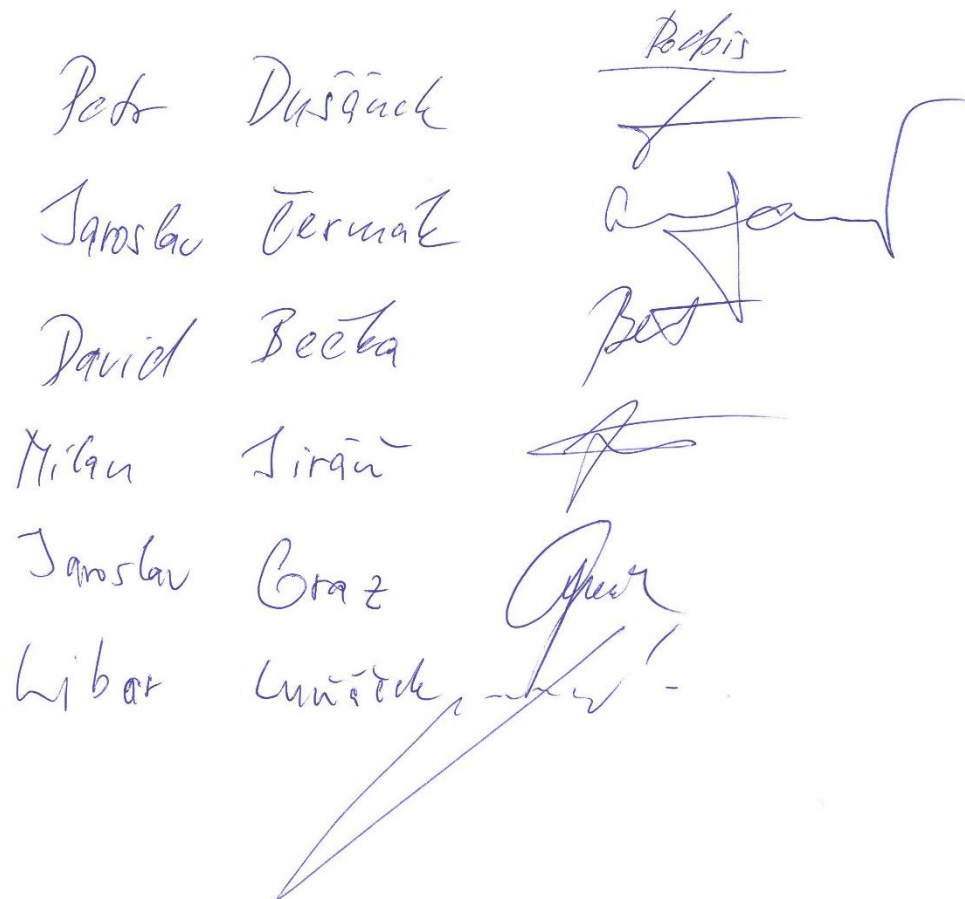 Podpis
Petr Dušánek
Jaroslav Čermák
David Bečka
Milan Jiráň
Jaroslav Graz
Libor Luňáček